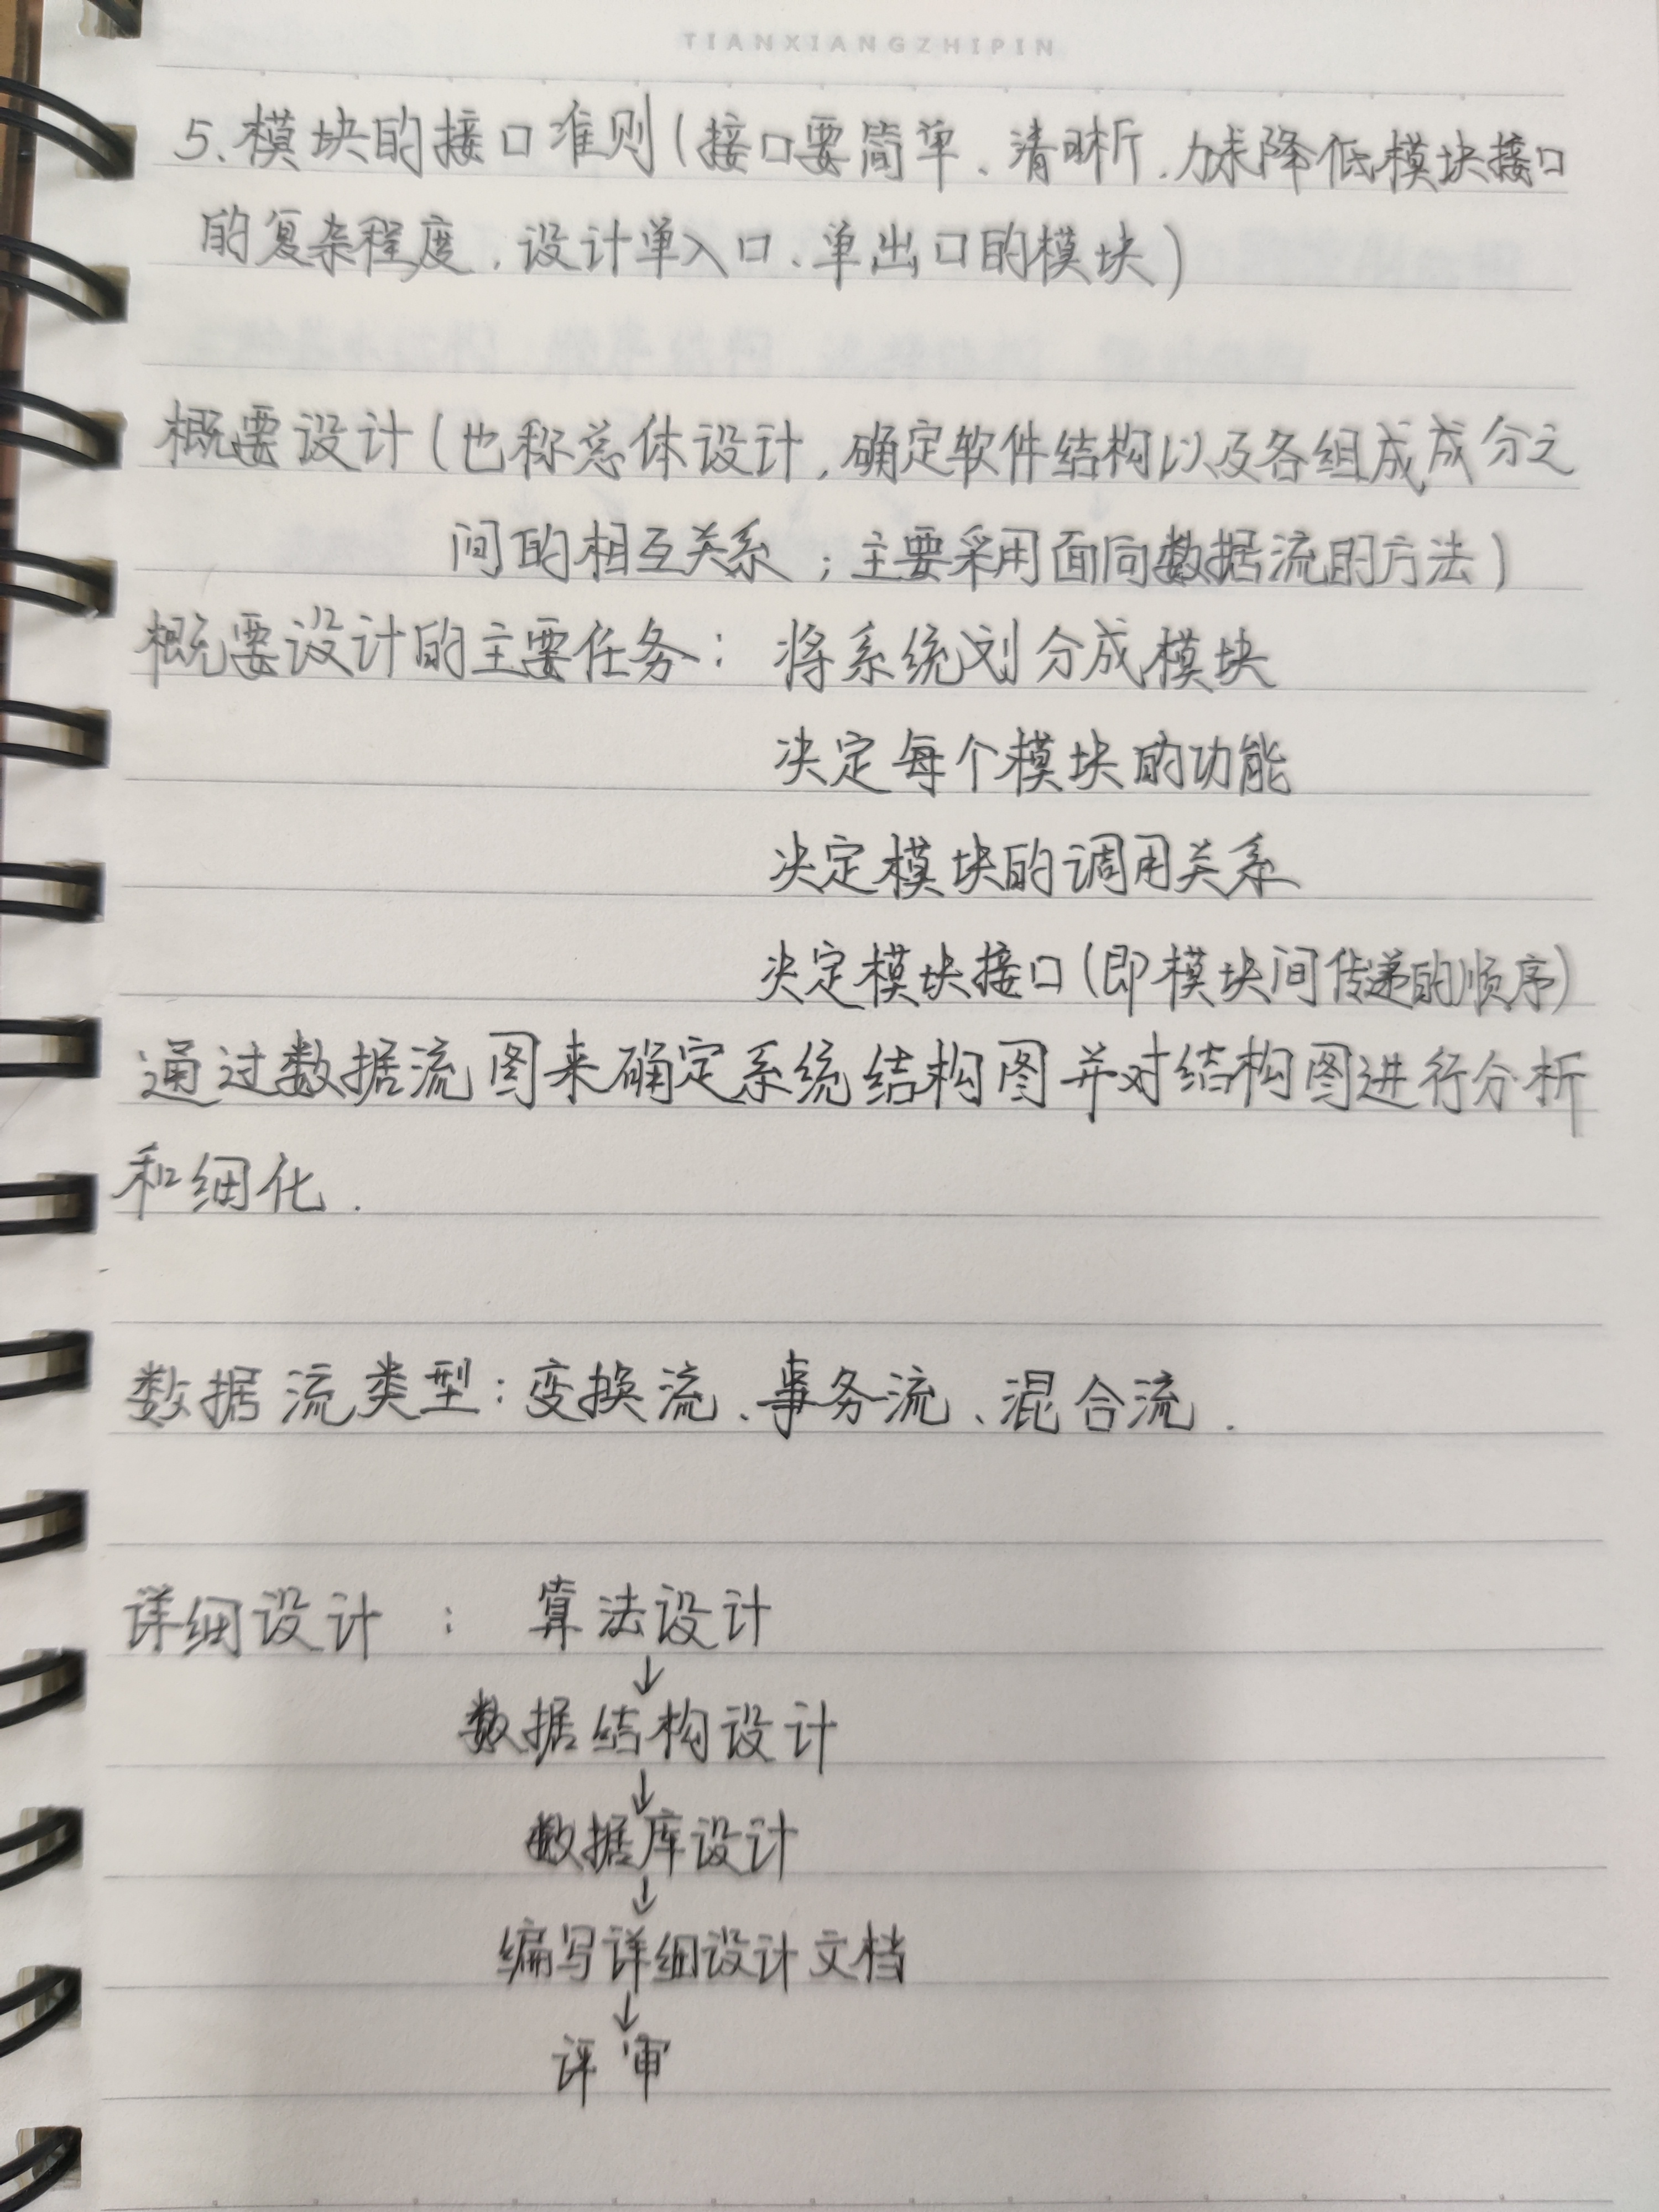 TIANXIANGZHIPIN
5、模块的接口准则(接口要简单、清晰,力求降低模块接口
的复杂程度,设计单入口、单出口的模块)
概要设计(也称总体设计,确定软件结构以及各组成成分之
间的相互关系;主要采用面向数据流的方法)
概要设计的主要任务: 将系统划分成模块
决定每个模块的功能
决定模块的调用关系
决定模块接口(即模块间传递的顺序)
通过数据流图来确定系统结构图并对结构图进行分析
和细化.
数据流类型:变换流、事务流、混合流.
详细设计 : 算法设计
↓
数据结构设计
↓
数据库设计
↓
编写详细设计文档
↓
评审